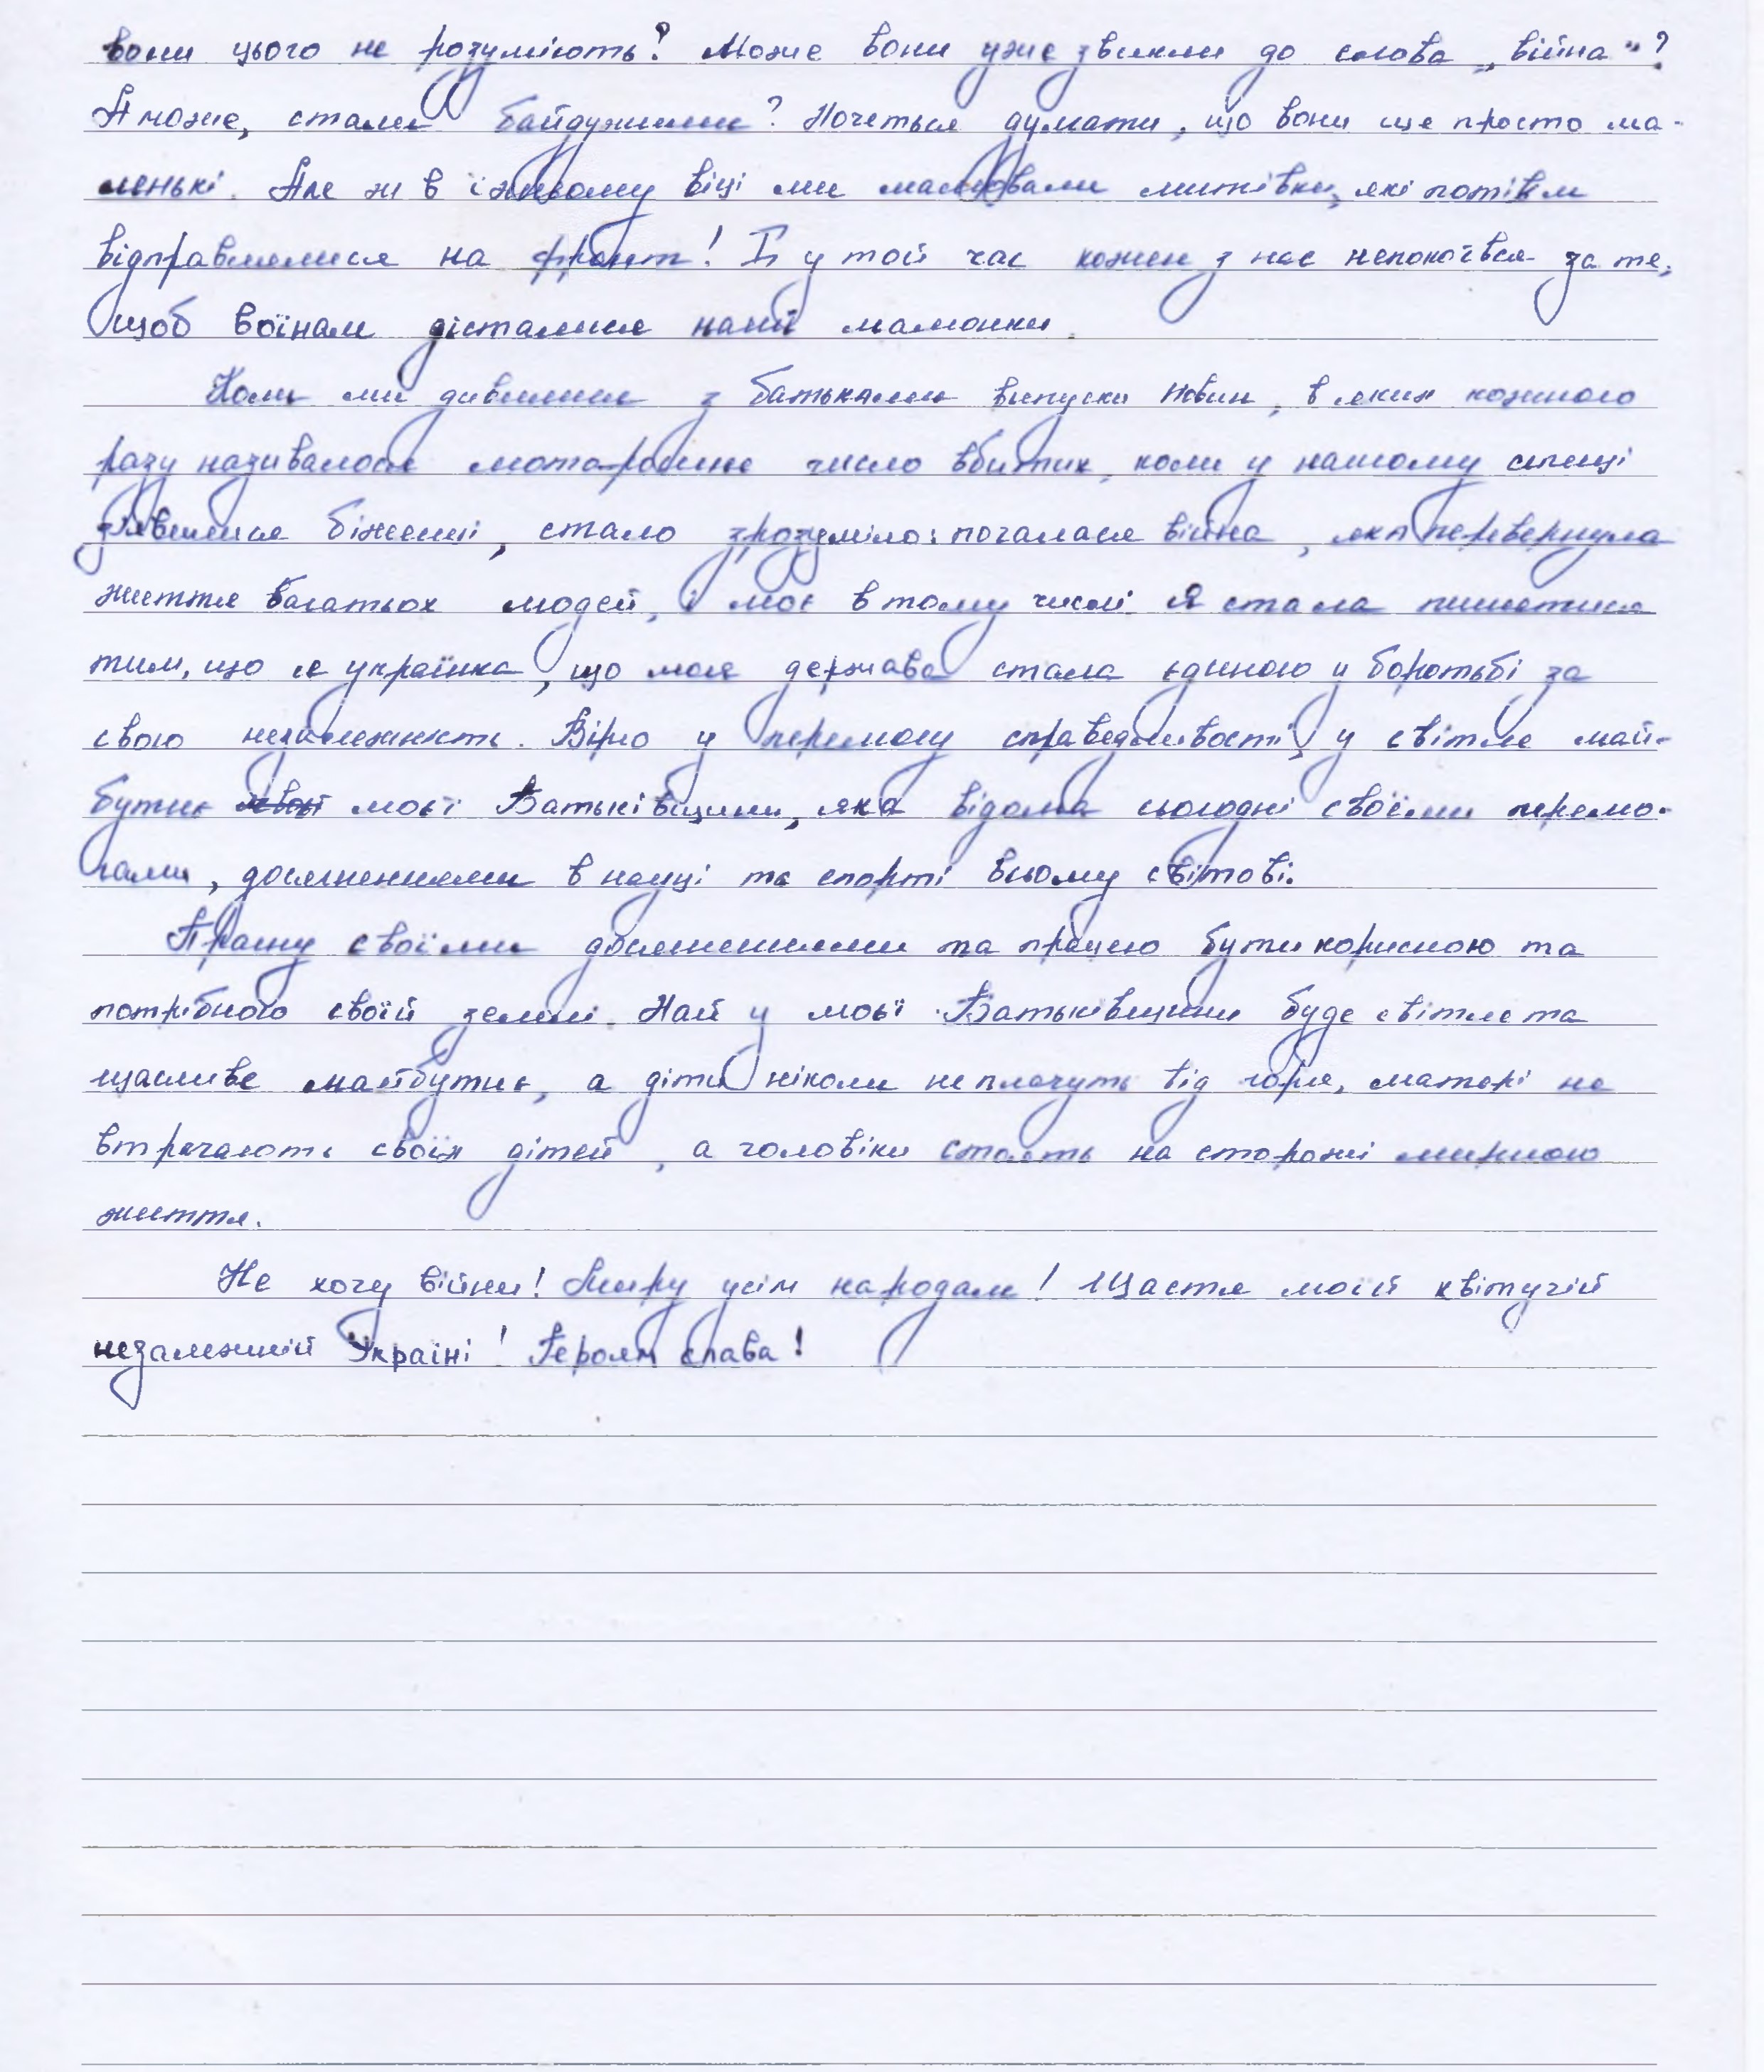 вони цього не розуміють? Може вони уже звикли до слова „війна"?
А може, стали байдужими? Хочеться думати, що вони ще просто ма-
ленькі. Але ж в їхньому віці ми малювали листівки, які потім
відправлялися на фронт! І у той час кожен з нас непокоївся за те,
щоб воїнам дісталися наші малюнки.
Коли ми дивилися з батьками випуски новин, в яких кожного
разу називалося моторошне число вбитих, коли у нашому селищі
з'явилися біженці, стало зрозуміло: почалася війна, яка перевернула
життя багатьох людей, і моє в тому числі. Я стала пишатися
тим, що я українка, що моя держава стала єдиною у боротьбі за
свою незалежність. Вірю у перемогу справедливості, у світле май-
бутнє моєї Батьківщини, яка відома сьогодні своїми перемо-
гами, досягненнями в науці та спорті всьому світові.
Прагну своїми досягненнями та працею бути корисною та
потрібною своїй землі. Най у моєї Батьківщини буде світле та
щасливе майбутнє, а діти ніколи не плачуть від горя, матері не
втрачають своїх дітей, а чоловіки стоять на сторожі мирного
життя.
Не хочу війни! Миру усім народам! Щастя моїй квітучій
незалежній Україні! Героям слава!